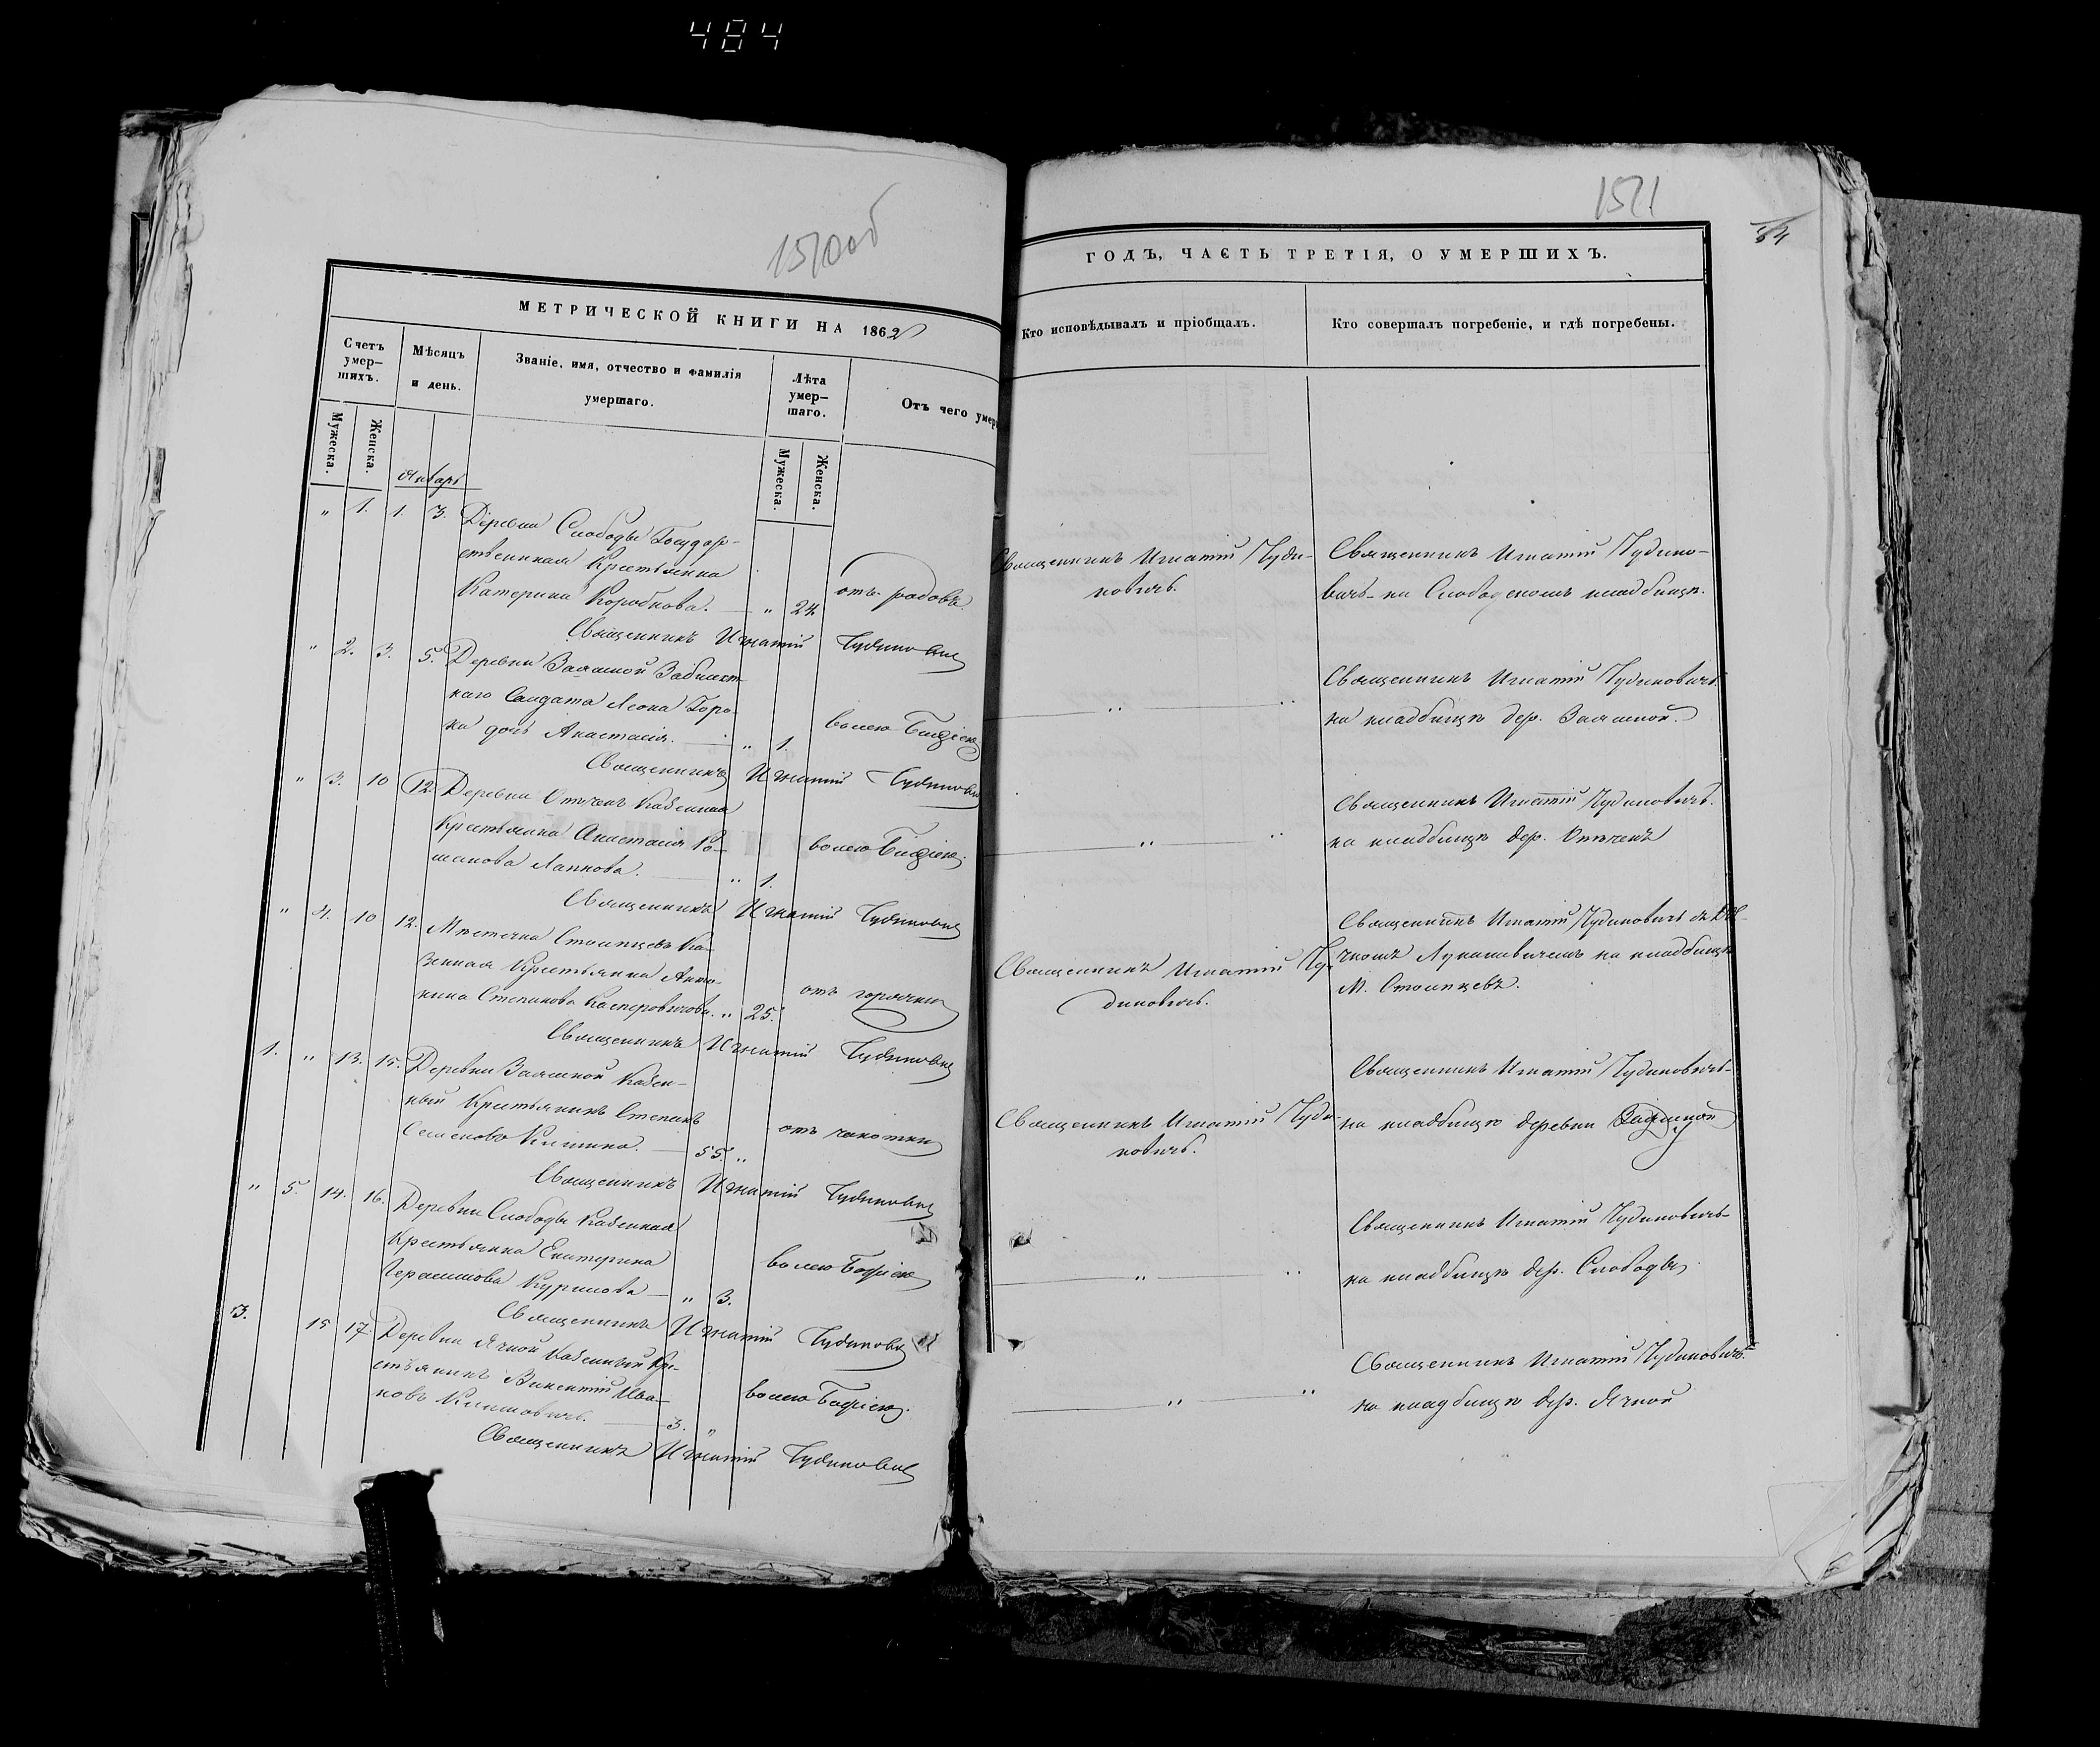 484
1510об
МЕТРИЧЕСКОЙ КНИГИ НА 1862
Счетъ умер-
шихъ.
Мѣсяцъ
и день.
Званіе, имя, отчество и фамилія
умершаго.
Лѣта
умер-
шаго.
Отъ чего умер
Мужеска.
Женска.
Мужеска.
Женска.
Январь
" 1. 1. 3. Деревни Слободы Государ-
ственная Крестьянка
Катерина Коробкова. — " 24. отъ родовъ
Священникъ Игнатій Чудиновичъ
" 2. 3. 5. Деревни Заямной
наго Солдата Леона Горо-
ка дочь Анастасія. — " 1. волею Божіею
Священникъ Игнатій Чудиновичъ
" 3. 10 12. Деревни Отѣчекъ Казенная
Крестьянка Анастасія Ро-
манова Лапкова. — " 1. волею Божіею.
Священникъ Игнатій Чудиновичъ
" 4. 10 12. Мѣстечка Столпцевъ Ка-
зенная Крестьянка Анто-
нина Степанова Касперовичова. " 25. отъ горячки
Священникъ Игнатій Чудиновичъ
1. " 13. 15. Деревни Заямной Казен-
ный Крестьянинъ Степанъ
Семеновъ — 55. " отъ чахотки
Священникъ Игнатій Чудиновичъ
" 5. 14. 16. Деревни Слободы Казенная
Крестьянка Екатерина
Герасимова Курилова — " 3. волею Божіею
Священникъ Игнатій Чудиновичъ
3. 15 17. Деревни Ячной Казенный Кре-
стьянинъ Викентій Ива-
новъ Климовичъ. — 3. " волею Божіею.
Священникъ Игнатій Чудиновичъ
1511
84
ГОДЪ, ЧАСТЬ ТРЕТІЯ, О УМЕРШИХЪ.
Кто исповѣдывалъ и пріобщалъ.
Кто совершалъ погребеніе, и гдѣ погребены.
Священникъ Игнатій Чуди-
новичъ.
Священникъ Игнатій Чудино-
вичъ на Слободскомъ кладбищѣ.
Священникъ Игнатій Чудиновичъ
на кладбищѣ дер. Заямной.
Священникъ Игнатій Чудиновичъ.
на кладбищѣ дер. Отѣчекъ
Священникъ Игнатій Чу-
диновичъ.
Священникъ Игнатій Чудиновичъ съ Дья-
чкомъ Лукашевичемъ на кладбищѣ
М. Столпцевъ.
Священникъ Игнатій Чуди-
новичъ.
Священникъ Игнатій Чудиновичъ
на кладбищѣ деревни Заямной
Священникъ Игнатій Чудиновичъ
на кладбищѣ дер. Слободы.
Священникъ Игнатій Чудиновичъ.
на кладбищѣ дер. Ячной